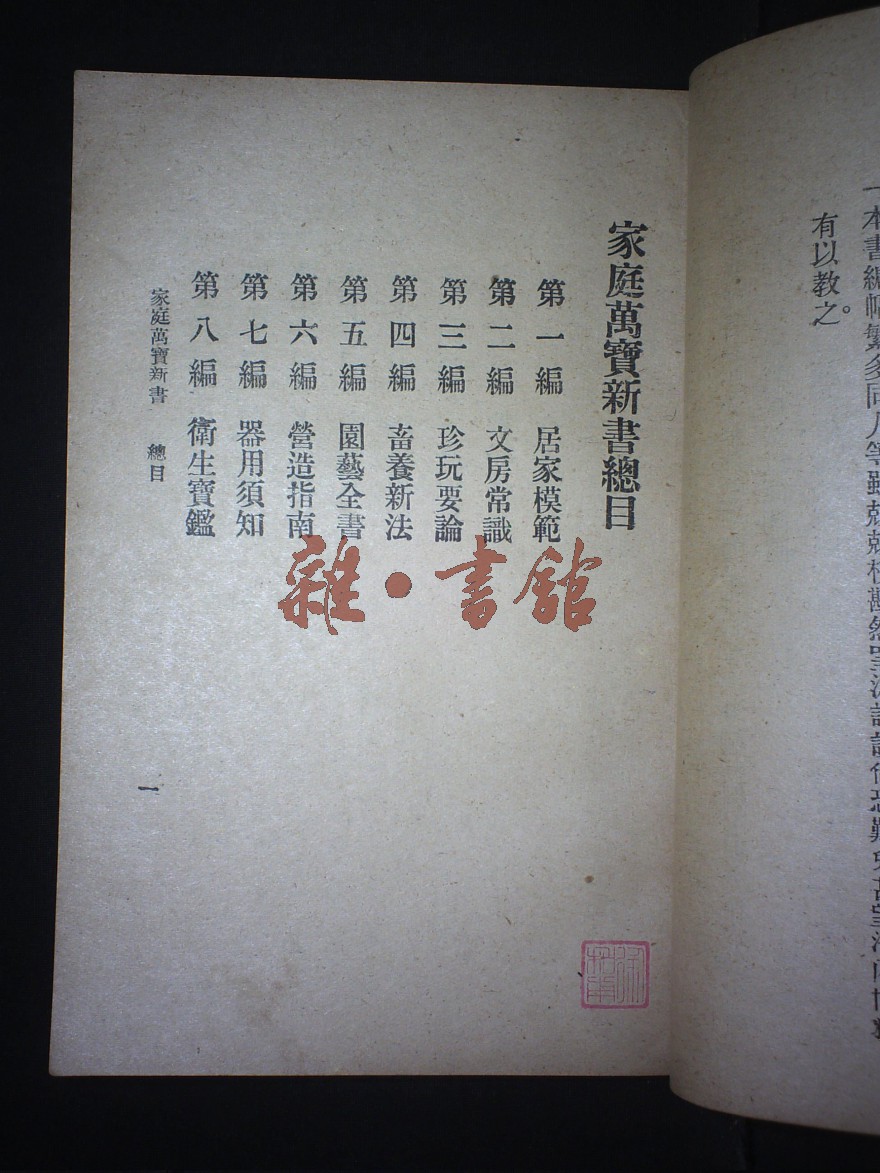 一本書編幅繁多同人等雖兢兢校勘然
有以教之。
家庭萬寶新書總目
第一編 居家模範
第二編 文房常識
第三編 珍玩要論
第四編 畜養新法
第五編 園藝全書
第六編 營造指南
第七編 器用須知
第八編 衛生寶鑑
家庭萬寶新書 總目 一
雜·書館